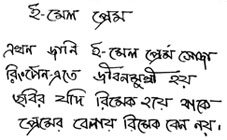 ই-মেল প্রেম
এখন জানি ই-মেল প্রেম সোজা
রিংটোন-এতে জীবনমুখী হয়
ছবির যদি রিমেক হয়ে থাকে
প্রেমের বেলায় রিমেক কেন নয়।